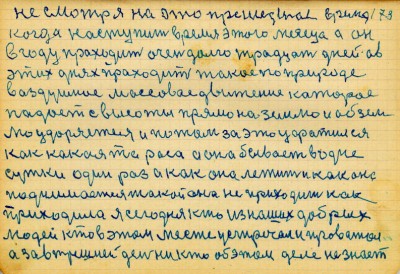 не смотря на это прошества время 173
когда наступит время этого месяца а он
в году проходит очен долго тридцат дней а в
этих днях проходит такое по природе
воздушние массовае движение каторае
падает с висоты прямо на землю и об зем
лю ударяется и потом за это ударитлся
как какоята раса а она бывает в одне
сутки один раз а как она летит и как она
поднимается такой она не приходит как
приходила я сегодня кто из наших добрых
людей кто в этом месте встречали и провожали
а завтришней ден никто об этом деле не знает